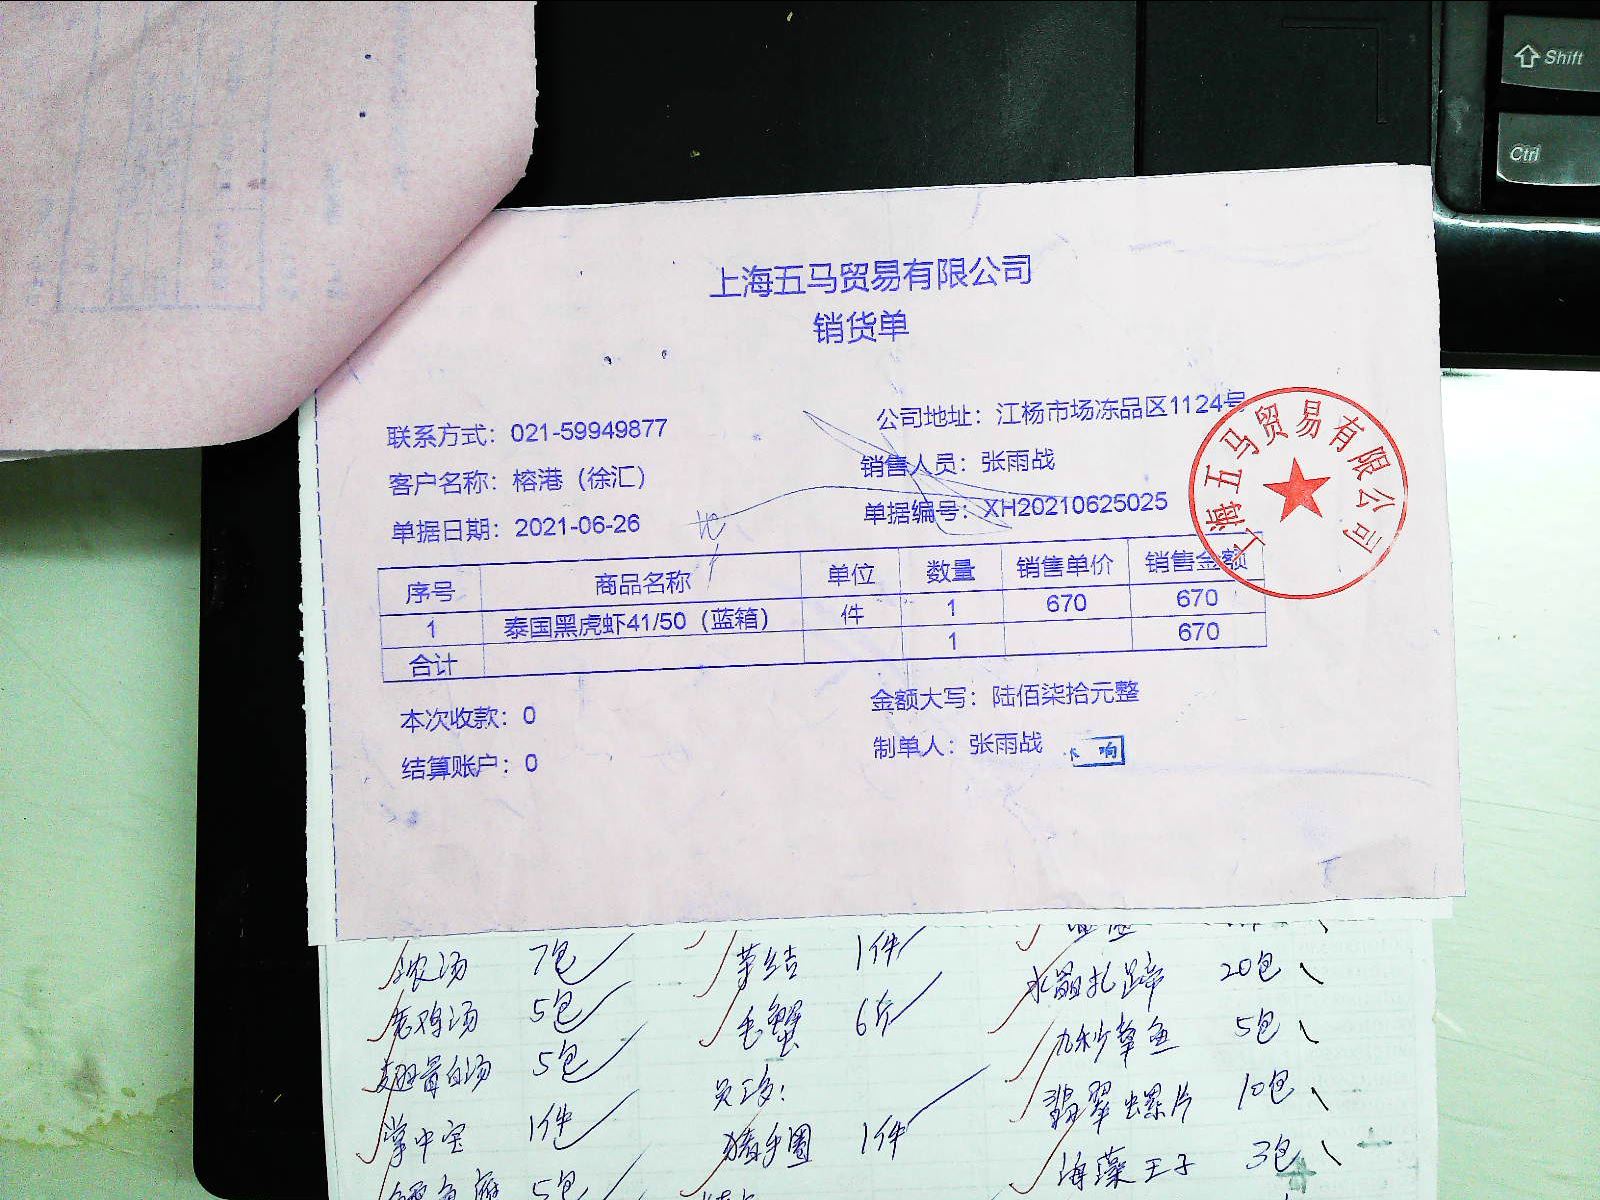 Shift
Ctrl
上海五马贸易有限公司
销货单
联系方式：021-59949877
公司地址：江杨市场冻品区1124号
客户名称：榕港（徐汇）
销售人员：张雨战
单据日期：2021-06-26
单据编号：XH20210625025
上海五马贸易有限公司
序号 商品名称 单位 数量 销售单价 销售金额
1 泰国黑虎虾41/50（蓝箱） 件 1 670 670
合计 1 670
本次收款：0
金额大写：陆佰柒拾元整
结算账户：0
制单人：张雨战
浓汤 7包 笋结 1件
老鸡汤 5包 毛蟹 6斤 水晶扎蹄 20包
翅骨白汤 5包 员工餐： 九秒草鱼 5包
掌中宝 1件 猪手圈 1件 翡翠螺片 10包
5包 海藻王子 3包